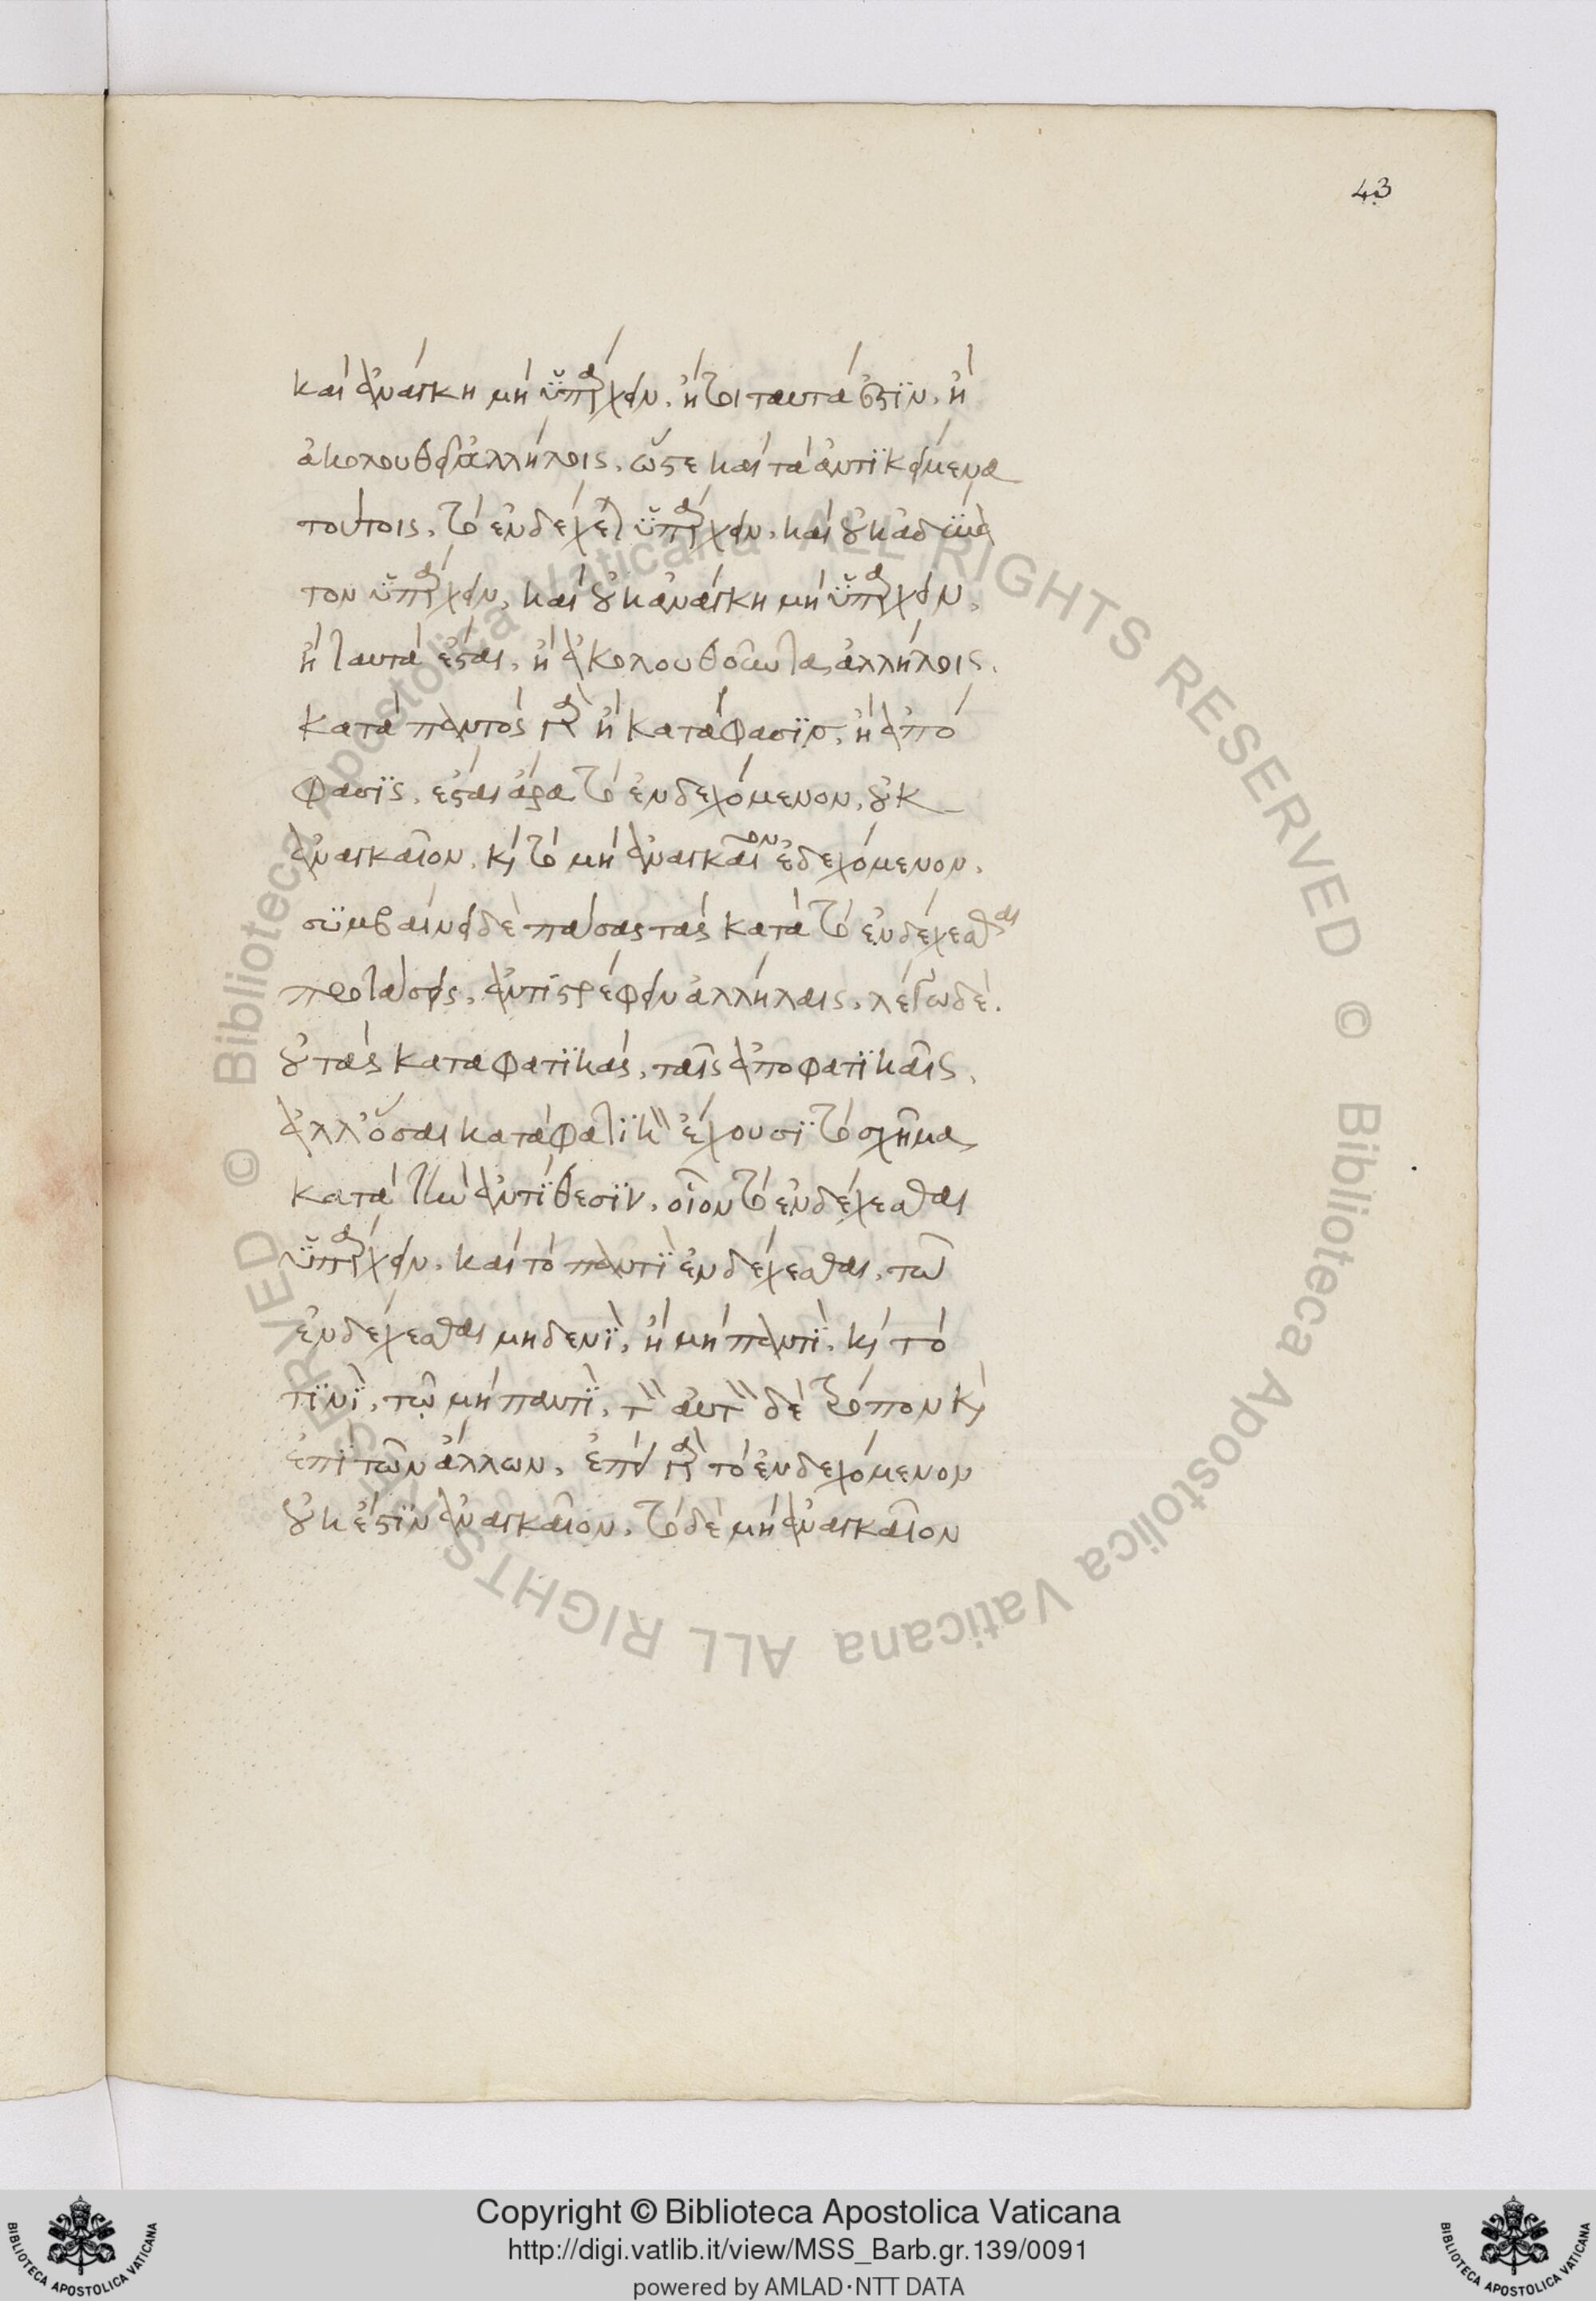 43
καὶ ἀνάγκη μὴ ὑπάρχειν, ἤτοι ταυτά ἐστϊν, ἢ
ἀκολουθεῖ ἀλλήλοις, ὥστε καὶ τὰ ἀντϊκείμενα
τούτοις, τὸ ἐνδέχεται ὑπάρχειν, καὶ οὐκ ἀδύνα
τον ὑπάρχειν, καὶ οὐκ ἀνάγκη μὴ ὑπάρχειν,
ἢ ταυτὰ ἔσται, ἢ ἀκολουθοῦντα ἀλλήλοις.
κατὰ παντὸς γὰρ ἢ κατάφασϊς, ἢ ἀπό
φασϊς, ἔσται ἄρα τὸ ἐνδεχόμενον, οὐκ
ἀναγκαῖον, καὶ τὸ μὴ ἀναγκαῖον ἐνδεχόμενον.
συμβαίνει δὲ πάσας τὰς κατὰ τὸ ἐνδέχεσθαι
προτάσεις, ἀντιστρέφειν ἀλλήλαις, λέγω δὲ.
οὐ τὰς καταφατϊκὰς, ταῖς ἀποφατϊκαῖς,
ἀλλ' ὅσαι καταφατϊκὸν ἔχουσϊ τὸ σχῆμα
κατὰ τὴν ἀντϊθεσϊν, οἷον τὸ ἐνδέχεσθαι
ὑπάρχειν, καὶ τὸ παντὶ ἐνδέχεσθαι, τῶ
ἐνδέχεσθαι μηδενϊ, ἢ μὴ παντϊ, καὶ τὸ
τϊνϊ, τῷ μὴ παντϊ, τὸν αὐτὸν δὲ τρόπον καὶ
ἐπϊ τῶν ἄλλων, ἐπεὶ γὰρ τὸ ἐνδεχόμενον
οὐκ ἔστϊν ἀναγκαῖον, τὸ δὲ μὴ ἀναγκαῖον
© Biblioteca Apostolica Vaticana ALL RIGHTS RESERVED © Biblioteca Apostolica Vaticana ALL RIGHTS RESERVED
BIBLIOTECA APOSTOLICA VATICANA
Copyright © Biblioteca Apostolica Vaticana
http://digi.vatlib.it/view/MSS_Barb.gr.139/0091
powered by AMLAD·NTT DATA
BIBLIOTECA APOSTOLICA VATICANA